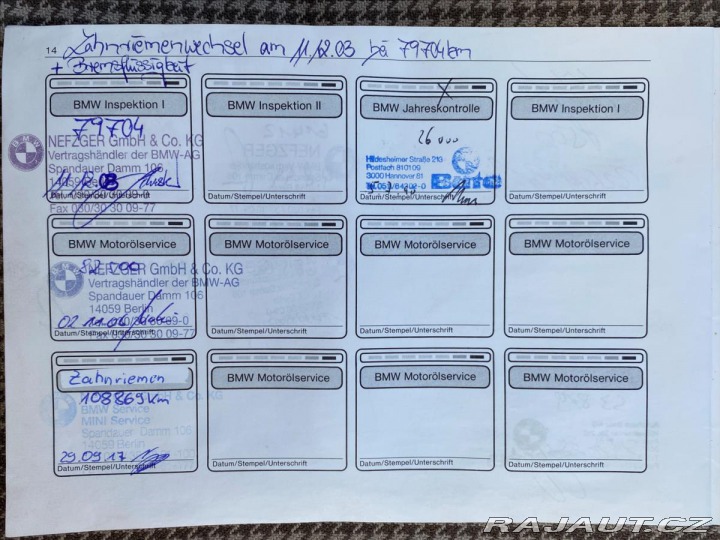 14 Zahnriemenwechsel am 11/12.03 bei 79704km
+ Bremsflüssigkeit
BMW Inspektion I
BMW Inspektion II
BMW Jahreskontrolle
BMW Inspektion I
79704
NEFZGER GmbH & Co. KG
Vertragshändler der BMW-AG
Spandauer Damm 106
11.12.03
Fax 030/30 30 09-77
Datum/Stempel/Unterschrift
Datum/Stempel/Unterschrift
26000
Hildesheimer Straße 213
Postfach 810109
3000 Hannover 81
Datum/Stempel/Unterschrift
Datum/Stempel/Unterschrift
BMW Motorölservice
BMW Motorölservice
BMW Motorölservice
BMW Motorölservice
NEFZGER GmbH & Co. KG
Vertragshändler der BMW-AG
Spandauer Damm 106
14059 Berlin
030/30 30 09-77
Datum/Stempel/Unterschrift
Datum/Stempel/Unterschrift
Datum/Stempel/Unterschrift
Datum/Stempel/Unterschrift
Zahnriemen
BMW Motorölservice
BMW Motorölservice
BMW Motorölservice
108869km
& Co. KG
BMW Service
MINI Service
Spandauer Damm 106
14059 Berlin
29.09.17
Datum/Stempel/Unterschrift
Datum/Stempel/Unterschrift
Datum/Stempel/Unterschrift
Datum/Stempel/Unterschrift
RAJAUT.CZ